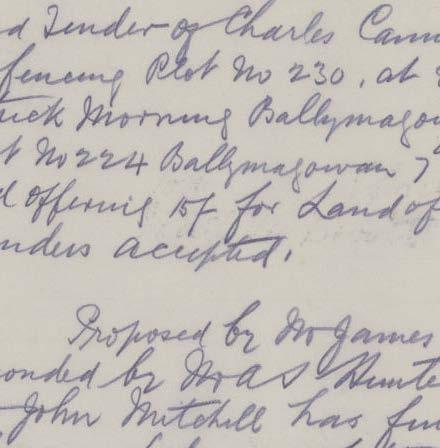 d Tender of Charles Cann
fencing Plot No 230, at
tick Morning Ballymagow
t No 224 Ballymagowan 7
d offering 15/- for Land of
nders accepted.
Proposed by Mr James
conded by Mr A S Hunte
John Mitchell has fu